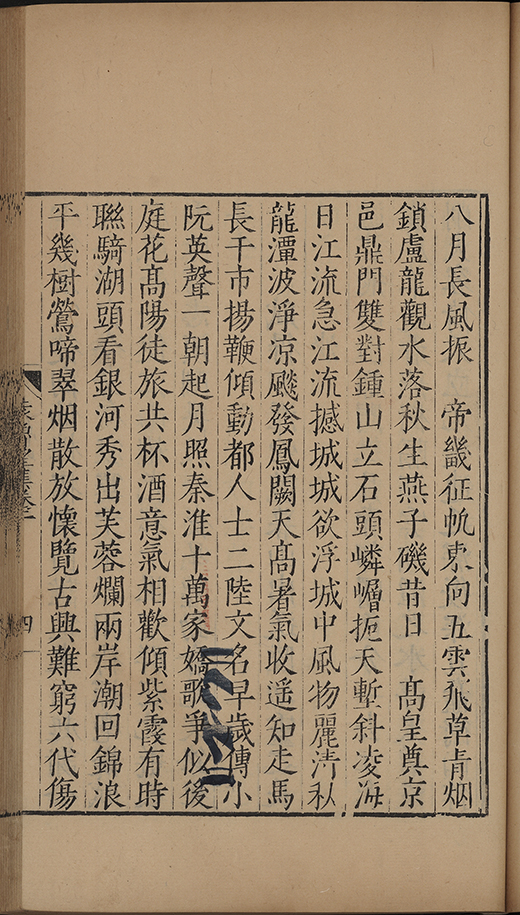 八月長風振　帝畿征帆東向五雲飛草青烟
鎖盧龍觀水落秋生燕子磯昔日　髙皇奠京
邑鼎門雙對鍾山立石頭嶙嶒扼天塹斜凌海
日江流急江流撼城城欲浮城中風物麗清秋
龍潭波淨凉飈發鳳闕天髙暑氣收遥知走馬
長干市揚鞭傾動都人士二陸文名早歲傳小
阮英聲一朝起月照秦淮十萬家嬌歌爭似後
庭花髙陽徒旅共杯酒意氣相歡傾紫霞有時
聮騎湖頭看銀河秀出芙蓉爛兩岸潮回錦浪
平幾樹鶯啼翠烟散放懐覽古興難窮六代傷
四